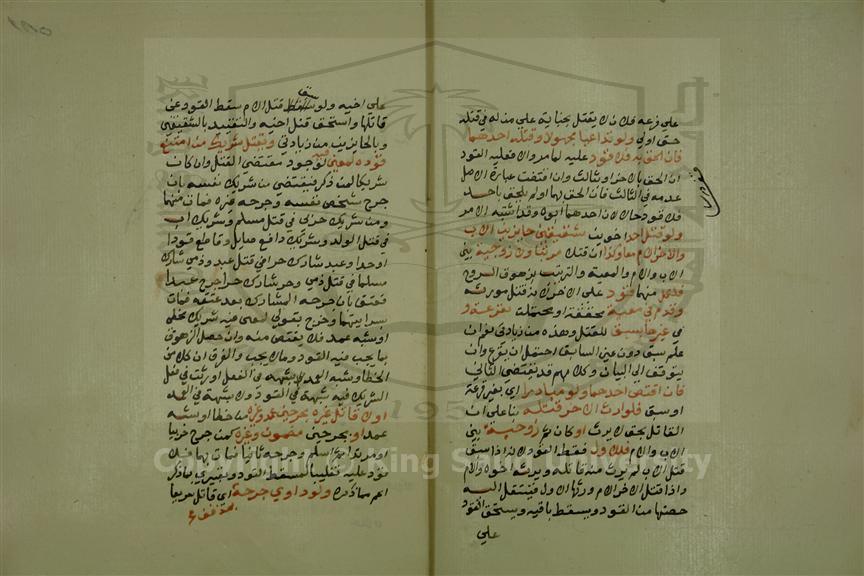 على فرعه فلان لا يقتل بجناية على منه له في قتله
حق اولى ولو تداعيا مجهولا وقتله احدهما
فان الحق به فلا قود عليه لما مر والا فعليه القود
ان الحق بالاخر او ثالث وان اقتضت عبارة الاصل
عدمه في الثالث فان الحق بهما او لم يلحق باحد
فلا قود حالا لان احدهما ابوه وقد اشتبه الامر
ولو قتل احد اخوين شقيقين حايزين الاب
والاخر الام معا ولو ان قتلا مرتبا ولا زوجية بين
الاب والام والمعية والترتيب بزهوق الروح
فلكل منهما قود على الاخر لانه قتل مورثه
وقدم في معية محققة او محتملة بقرعة و
في غيرها بسبق للقتل وهذه من زيادتي نعم ان
علم سبق دون عين السابق احتمل ان يقرع وان
يتوقف الى البيان وكلامهم قد يقتضي الثاني
فان اقتص احدهما ولو مبادرا اي بغير قرعة
او سبق فلوارث الاخر قتله بناء على ان
القاتل بحق لا يرث او كان ثم زوجية بين
الاب والام فللاول فقط القود لانه اذا سبق
قتل الاب لم يرث منه قاتله ويرثه اخوه والام
واذا قتل الاخر الام ورثها الاول فتنتقل اليه
حصتها من القود ويسقط باقيه ويستحق القود
على
على اخيه ولو سبق قتل الام سقط القود عن
قاتلها واستحق قتل اخيه والتقييد بالشقيقين
وبالحايزين من زيادتي ويقتل شريك من امتنع
قوده لمعنى فيه لوجود مقتضى القتل وان كان
شريكا لمن ذكر فيقتص من شريك نفسه بان
جرح شخص نفسه وجرحه غيره فمات منهما
ومن شريك حربي في قتل مسلم وشريك اب
في قتل الولد وشريك دافع صايل وقاطع قودا
او حدا وعبد شارك حرا في قتل عبد وذمي شارك
مسلما في قتل ذمي وحر شارك حرا جرح عبدا
فعتق بان جرحه المشارك بعد عتقه فمات
بسرايتهما وخرج بقولي لمعنى فيه شريك مخطئ
او شبه عمد فلا يقتص منه وان حصل الزهوق
بما يجب فيه القود وما لا يجب والفرق ان كلا من
الخطا وشبه العمد شبهة في الفعل اورثت في فعل
الشريك فيه شبهة في القود ولا شبهة في العمد
او لا قاتل غيره بجرحين عمد وغيره من خطا او شبه
عمد او بجرحين مضمون وغيره كمن جرح حربيا
او مرتدا ثم اسلم وجرحه ثانيا فمات بهما فلا
قود عليه تغليبا لمسقط القود وتعبيري بما ذكر
اعم مما ذكره ولو داوى جرحه اي قاتل سريعا